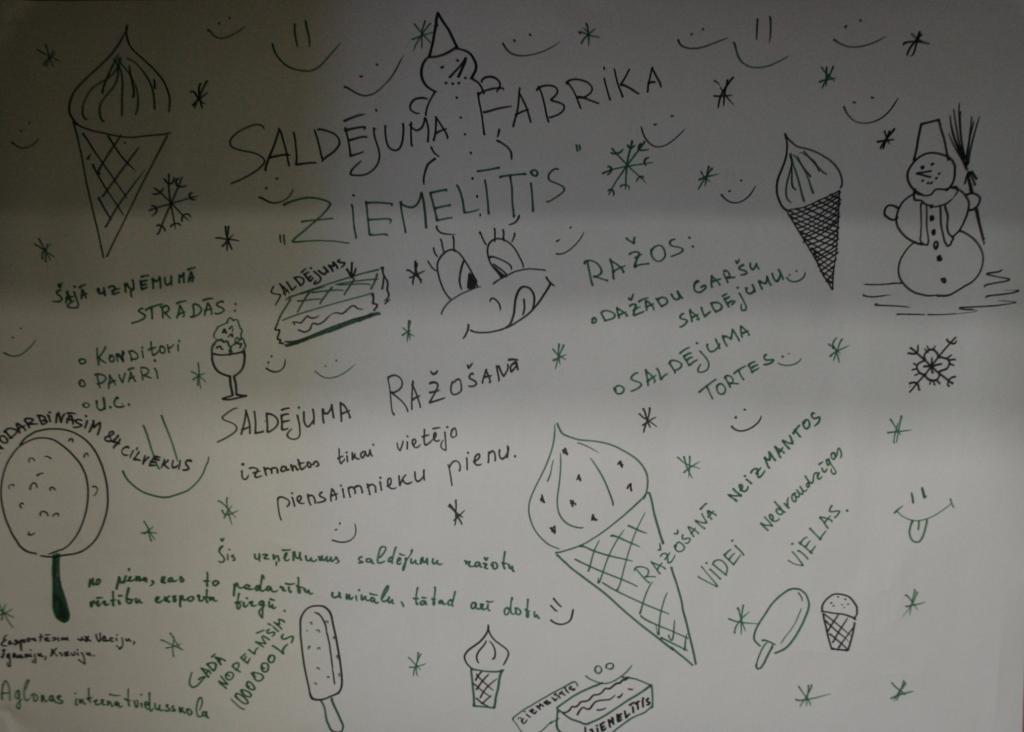 SALDĒJUMA FABRIKA
"ZIEMELĪTIS"
ŠAJĀ UZŅĒMUMĀ
STRĀDĀS:
KONDITORI
PAVĀRI
U.C.
NODARBINĀSIM 84 CILVĒKUS
SALDĒJUMS
RAŽOS:
DAŽĀDU GARŠU
SALDĒJUMU
SALDĒJUMA
TORTES
SALDĒJUMA RAŽOŠANĀ
izmantos tikai vietējo
piensaimnieku pienu.
RAŽOŠANĀ NEIZMANTOS
VIDEI nedraudzīgas
VIELAS.
Šis uzņēmums saldējumu ražotu
no piena, kas to padarītu unikālu, tātad arī dotu
vērtību eksporta tirgū.
Eksportēsim uz Vāciju,
Igauniju, Krieviju.
GADĀ
NOPELNĪSIM
1000000 LS
Aglonas internātvidusskola
ZIEMELĪTIS
ZIEMELĪTIS